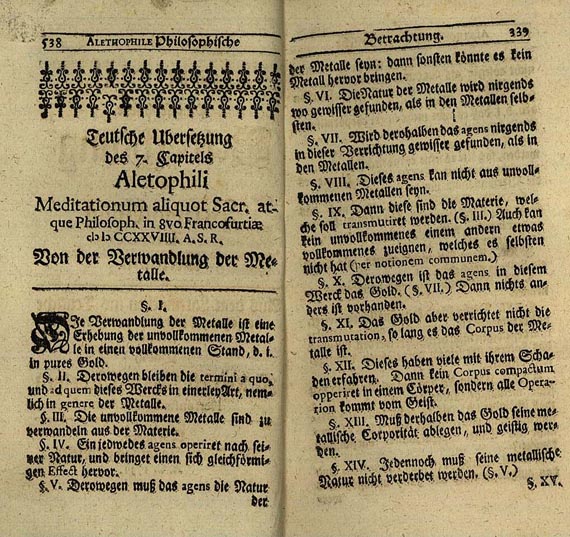 538 ALETHOPHILE Philosophische
Teutsche Ubersetzung
des 7. Capitels
Aletophili
Meditationum aliquot Sacr. at-
que Philosoph. in 8vo Francofurtiæ
cIɔ Iɔ CCXXVIIII. A. S. R.
Von der Verwandlung der Me-
talle.
§. I.
DJe Verwandlung der Metalle ist eine
Erhebung der unvollkommenen Metal-
le in einen vollkommenen Stand, d. i.
in pures Gold.
§. II. Derowegen bleiben die termini a quo,
und ad quem dieses Wercks in einerley Art, nem-
lich in genere der Metalle.
§. III. Die unvollkommene Metalle sind zu
verwandeln aus der Materie.
§. IV. Ein jedwedes agens operiret nach sei-
ner Natur, und bringet einen sich gleichförmi-
gen Effect hervor.
§. V. Derowegen muß das agens die Natur
der
Betrachtung. 339
der Metalle seyn: dann sonsten könnte es kein
Metall hervor bringen.
§. VI. Die Natur der Metalle wird nirgends
wo gewisser gefunden, als in den Metallen selb-
sten.
§. VII. Wird derohalben das agens nirgends
in dieser Verrichtung gewisser gefunden, als in
den Metallen.
§. VIII. Dieses agens kan nicht aus unvoll-
kommenen Metallen seyn.
§. IX. Dann diese sind die Materie, wel-
che soll transmutiret werden. (§. III.) Auch kan
kein unvollkommenes einem andern etwas
vollkommenes zueignen, welches es selbsten
nicht hat (per notionem communem.)
§. X. Derowegen ist das agens in diesem
Werck das Gold. (§. VII.) Dann nichts an-
ders ist vorhanden.
§. XI. Das Gold aber verrichtet nicht die
transmutation, so lang es das Corpus der Me-
talle ist.
§. XII. Dieses haben viele mit ihrem Scha-
den erfahren. Dann kein Corpus compactum
opperiret in einem Cörper, sondern alle Opera-
tion kommt vom Geist.
§. XIII. Muß derhalben das Gold seine me-
tallische Corporität ablegen, und geistig wer-
den.
§. XIV. Jedennoch muß seine metallische
Natur nicht verderbet werden. (§. V.)
§. XV.